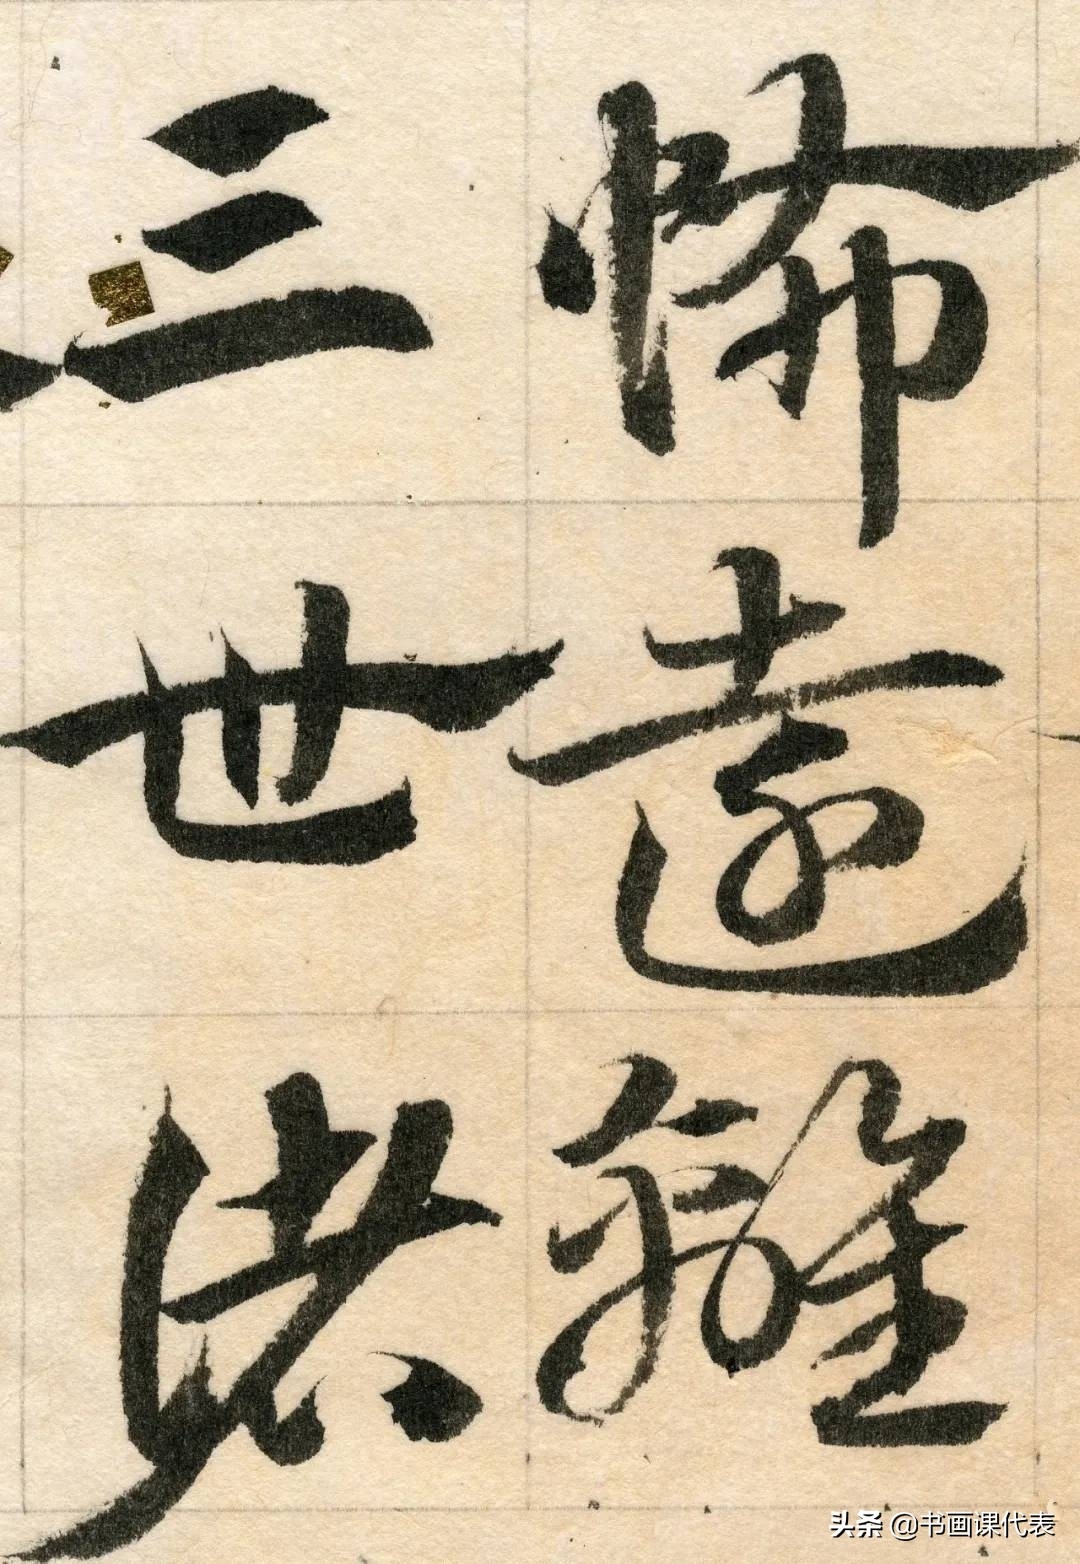 怖遠離
三世諸
头条 @书画课代表